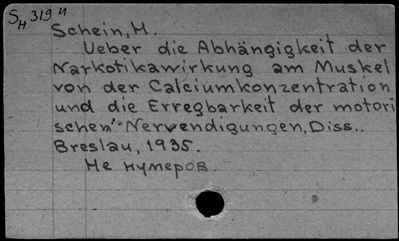 Sн 319 и
Schein, M.
Ueber die Abhängigkeit der
Narkotikawirkung am Muskel
von der Calciumkonzentration
und die Erregbarkeit der motori
schen Nervendigungen, Diss..
Breslau, 1935.
Не нумеров.